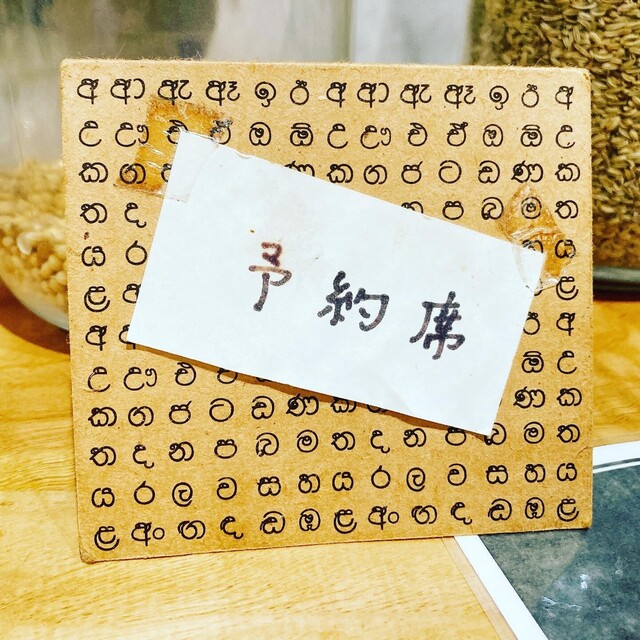 අ ආ ඇ ඈ ඉ ඊ අ ආ ඇ ඈ ඉ ඊ අ
උ ඌ එ ඔ ඕ උ ඌ එ ඒ ඔ ඕ උ
ක ග ණ ක ග ජ ට ඩ ණ ක
ත ද ප බ ම ත
ය ර ය
ළ ළ
予約席
අ ඊ අ
උ ඌ එ ඕ උ
ක ග ජ ට ඩ ණ ක ණ ක
ත ද න ප බ ම ත ද න ප බ ම ත
ය ර ල ව ස හ ය ර ල ව ස හ ය
ළ අං ඟ ඳ ඬ ඹ ළ අං ඟ ඳ ඬ ඹ ළ